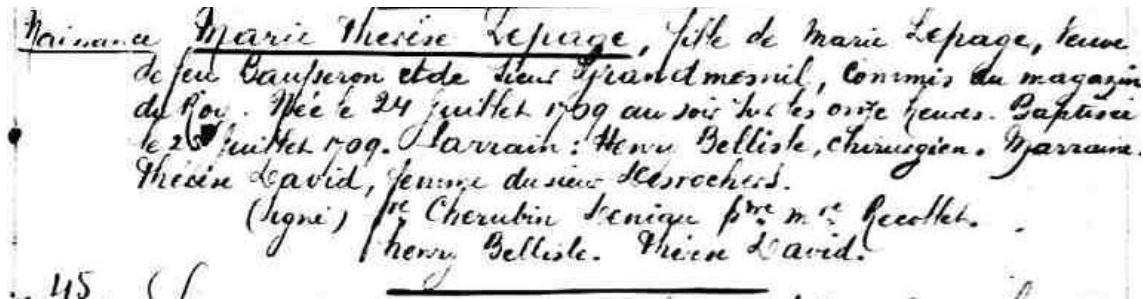 Naissance Marie Thérèse Lepage, fille de Marie Lepage, veuve
de feu Gausseron et de Sieur Grandmesnil, Commis du magazin
du Roy. Née le 24 Juillet 1709 au soir sur les onze heures. Baptisée
le 25 Juillet 1709. Parrain: Henry Bellisle, Chirurgien. Marraine:
Thérèse David, femme du sieur Desrochers.
(signé) fr Cherubin Deniau ptre mre Recollet.
henry Bellisle. Thérèse David.
45